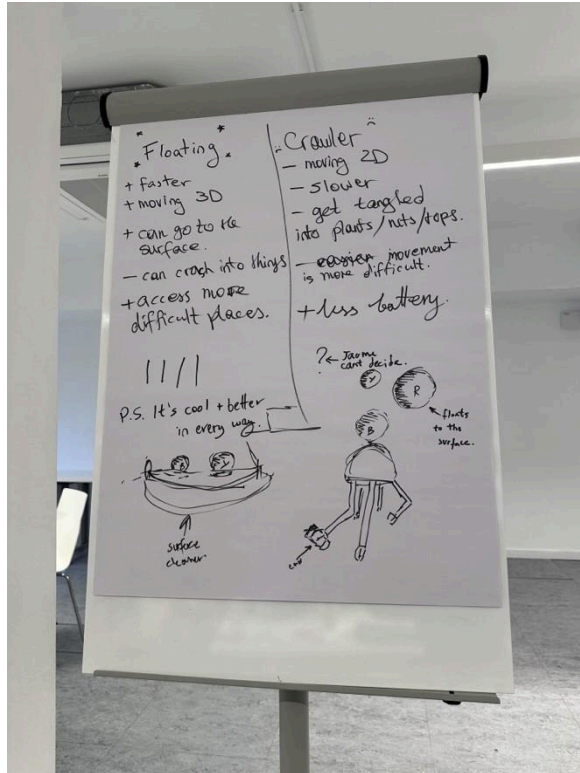 Floating
+ faster
+ moving 3D
+ can go to the
surface.
- can crash into things
+ access more
difficult places.
P.S. It's cool + better
in every way.
B
Y
surface
cleaner.
Crawler
- moving 2D
- slower
- get tangled
into plants/nets/
- movement
is more difficult.
+ less battery.
? ← Jaume
cant decide.
Y
R
floats
to the
surface.
B